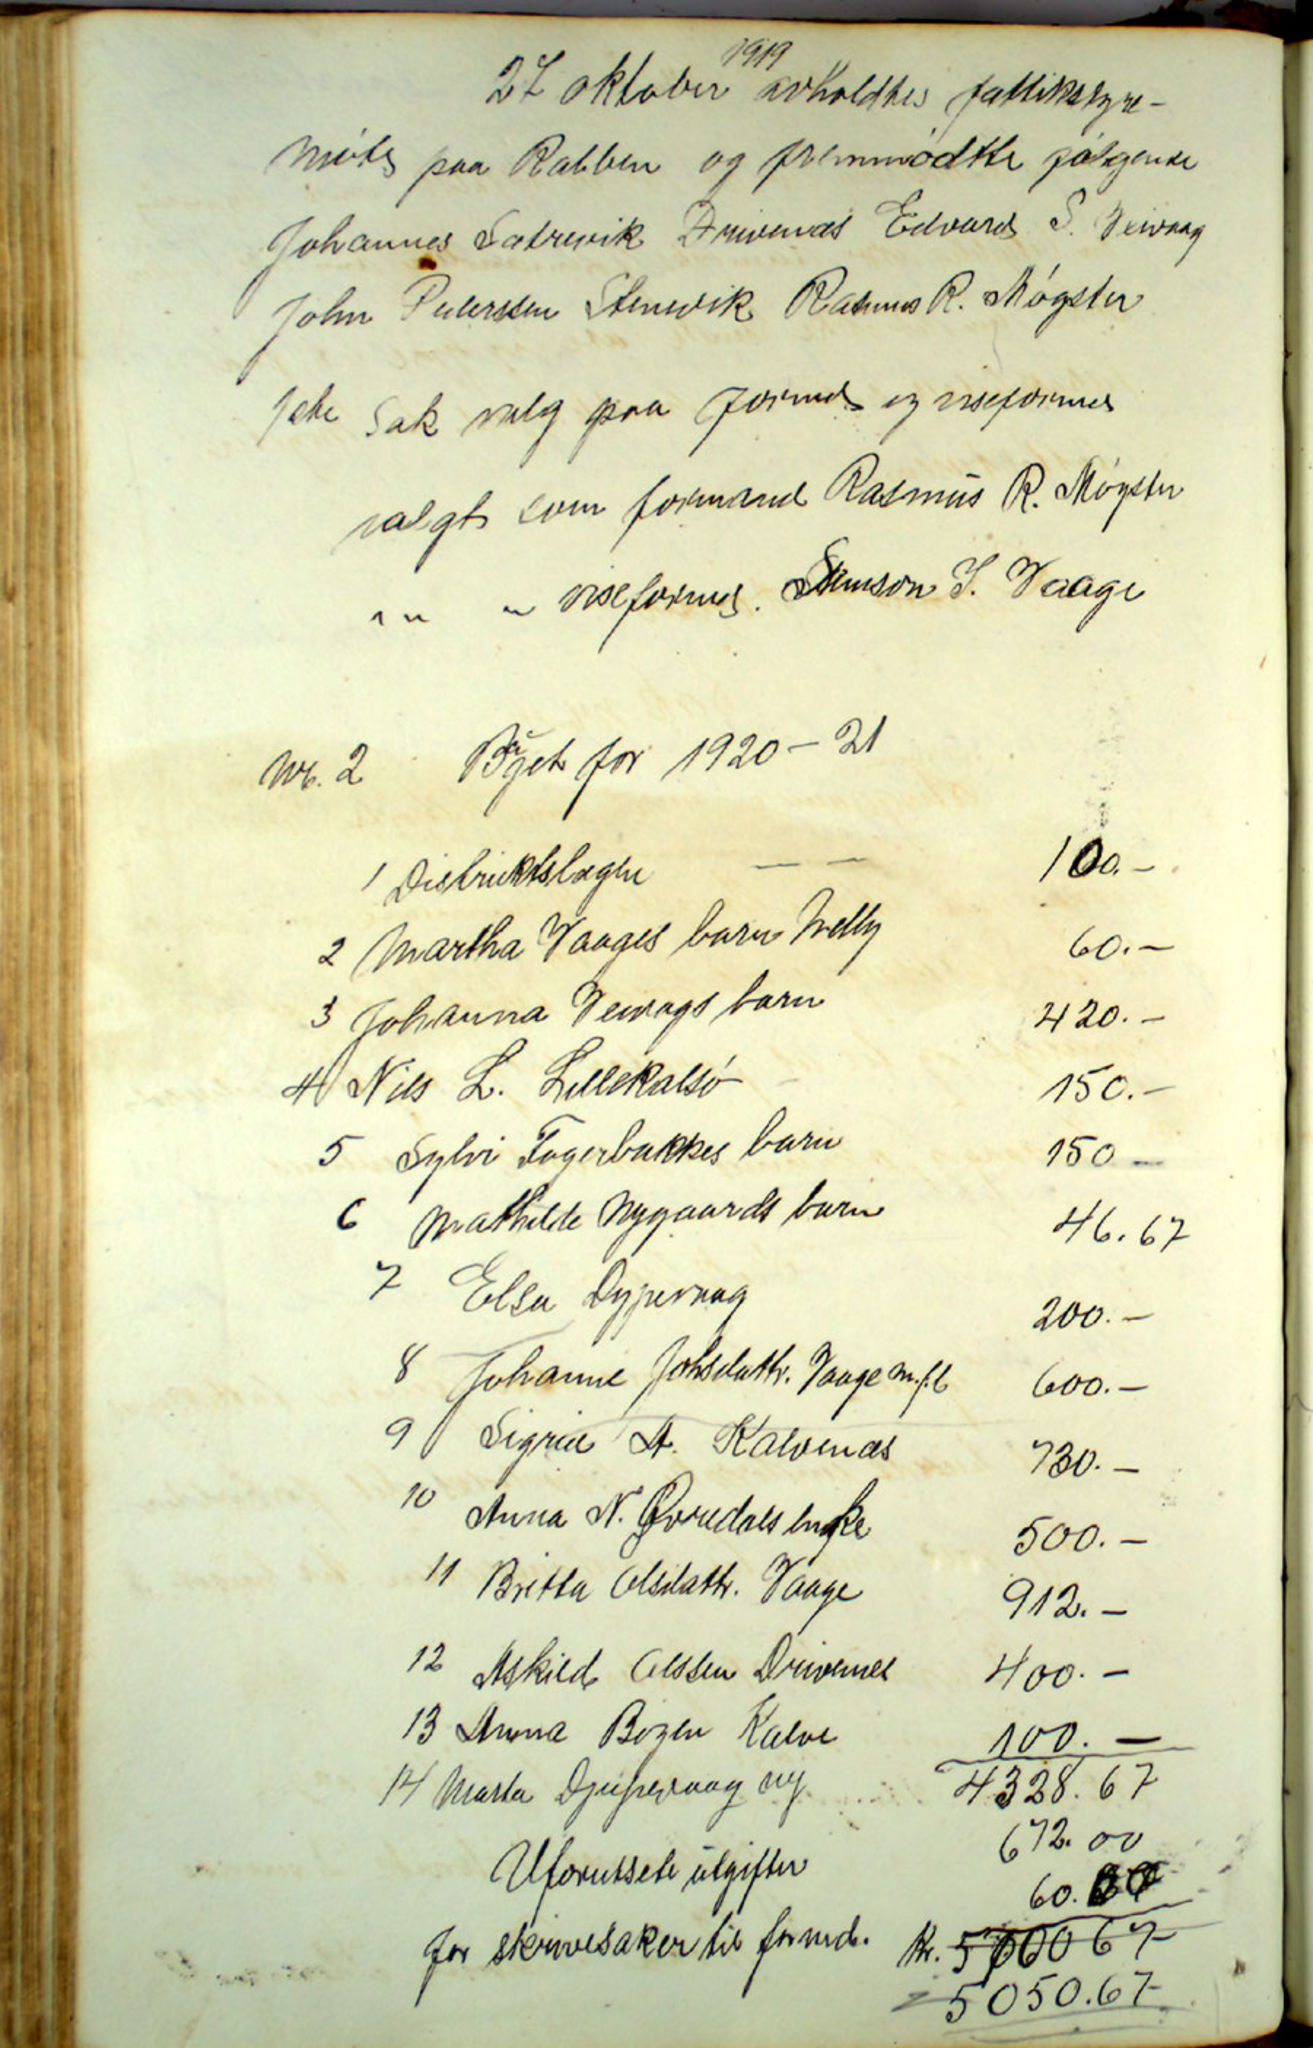 1919
27 oktober avholdtes fattikstyre-
møte paa Rabben og fremmødtte følgende
Johannes Sætrevik Drivenæs Edvard S. Veivaag
John Peterssen Stenevik Rasmus R. Møgster
1ste Sak valg paa formd og viseformd
valgt som formand Rasmus R. Møgster
" " " viseformd. Samson J. Vaage
Nr. 2 Bŭget for 1920-21
1 Distriktslægen — — 100.-
2 Martha Vaages barn Nelly 60.-
3 Johanna Veivags barn 420.-
4 Nils L. Lillekalsø 150.-
5 Sylvi Fagerbakkes barn 150 -
6 Mathilde Nygaards barn 46.67
7 Elsa Dypevaag 200.-
8 Johanne Johsdattr. Vaage m.f.l 600.-
9 Sigrid A. Kalvenæs 730.-
10 Anna N. Øvredals enke 500.-
11 Britta Olsdattr. Vaage 912.-
12 Askild Olssen Drivenes 400.-
13 Anna Bozen Kalve 100.-
14 Marta Djupevaag ny 4328.67
Uforutsete ŭtgifter 672.00
60.00
for skrivesaker til formd. Kr. 5060 67
5050.67